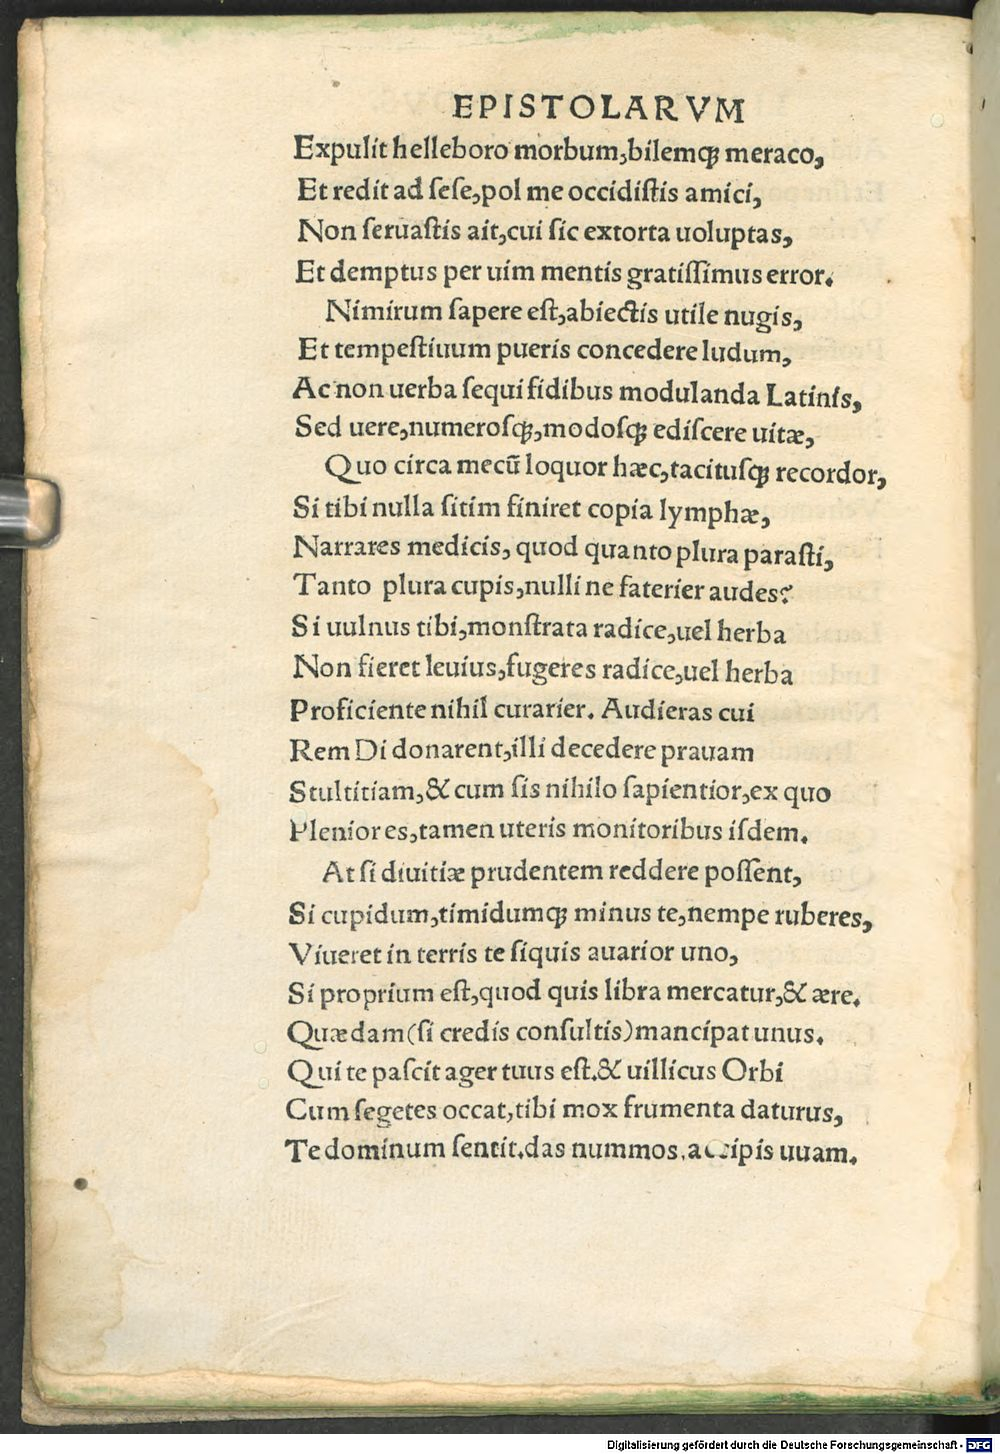 EPISTOLARVM
Expulit helleboro morbum,bilemqꝫ meraco,
Et redit ad ſeſe,pol me occidiſtis amici,
Non ſeruaſtis ait,cui ſic extorta uoluptas,
Et demptus per uim mentis gratiſſimus error.
Nimirum ſapere eſt,abiectis utile nugis,
Et tempeſtiuum pueris concedere ludum,
Ac non uerba ſequi fidibus modulanda Latinis,
Sed uere,numeroſqꝫ,modoſqꝫ ediſcere uitæ,
Quo circa mecū loquor hæc,tacituſqꝫ recordor,
Si tibi nulla ſitim finiret copia lymphæ,
Narrares medicis, quod quanto plura paraſti,
Tanto plura cupis,nulli ne faterier audes?
Si uulnus tibi,monſtrata radice,uel herba
Non fieret leuius,fugeres radice,uel herba
Proficiente nihil curarier. Audieras cui
Rem Di donarent,illi decedere prauam
Stultitiam,& cum ſis nihilo ſapientior,ex quo
Plenior es,tamen uteris monitoribus iſdem.
At ſi diuitiæ prudentem reddere poſſent,
Si cupidum,timidumqꝫ minus te,nempe ruberes,
Viueret in terris te ſiquis auarior uno,
Si proprium eſt,quod quis libra mercatur,& ære.
Quædam(ſi credis conſultis)mancipat unus.
Qui te paſcit ager tuus eſt.& uillicus Orbi
Cum ſegetes occat,tibi mox frumenta daturus,
Te dominum ſentit.das nummos.accipis uuam.
Digitalisierung gefördert durch die Deutsche Forschungsgemeinschaft - DFG